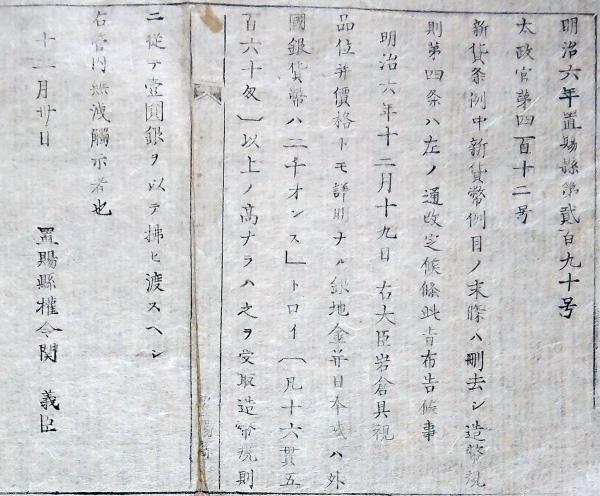 明治六年置賜縣第貳百九十号
太政官第四百十二号
新貨条例中新貨幣例目ノ末条ハ刪去シ造幣規
則第四条ハ左ノ通改定候條此旨布告候事
明治六年十二月十九日 右大臣岩倉具視
品位并價格トモ詳明ナル銀地金并日本或ハ外
國銀貨幣ハ二千オンス」トロイ〔凡十六貫五
百六十匁〕以上ノ高ナラハ之ヲ受取造幣規則
ニ從テ壹圓銀ヲ以テ拂ヒ渡スヘシ
右管内無洩觸示者也
十二月廿日
置賜縣權令関 義臣